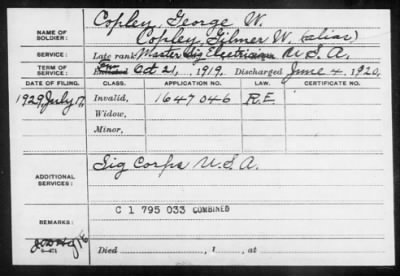 Copley, George W.
NAME OF SOLDIER: Copley, Gilmer W. (alias)
SERVICE: Late rank, Master Sig Electrician U.S.A.
TERM OF SERVICE: Enlisted Oct 21, 1919. Discharged June 4, 1920.
DATE OF FILING. CLASS. APPLICATION NO. LAW. CERTIFICATE NO.
1929, July 17, Invalid, 1647046 R.E.
Widow,
Minor,
ADDITIONAL SERVICES: Sig Corps U.S.A.
C 1 795 033 COMBINED
REMARKS:
Died , 1 , at